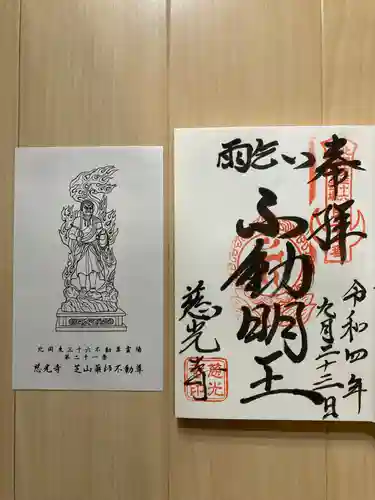 奉拝
令和四年
九月二十三日
雨乞い
不動明王
慈光寺
北関東三十六不動尊霊場
第二十一番
慈光寺 芝山薬師不動尊